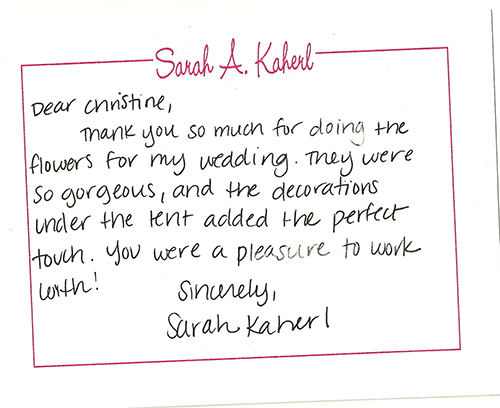 Sarah A. Kaherl
Dear Christine,
Thank you so much for doing the
flowers for my wedding. They were
so gorgeous, and the decorations
under the tent added the perfect
touch. You were a pleasure to work
with!
Sincerely,
Sarah Kaherl